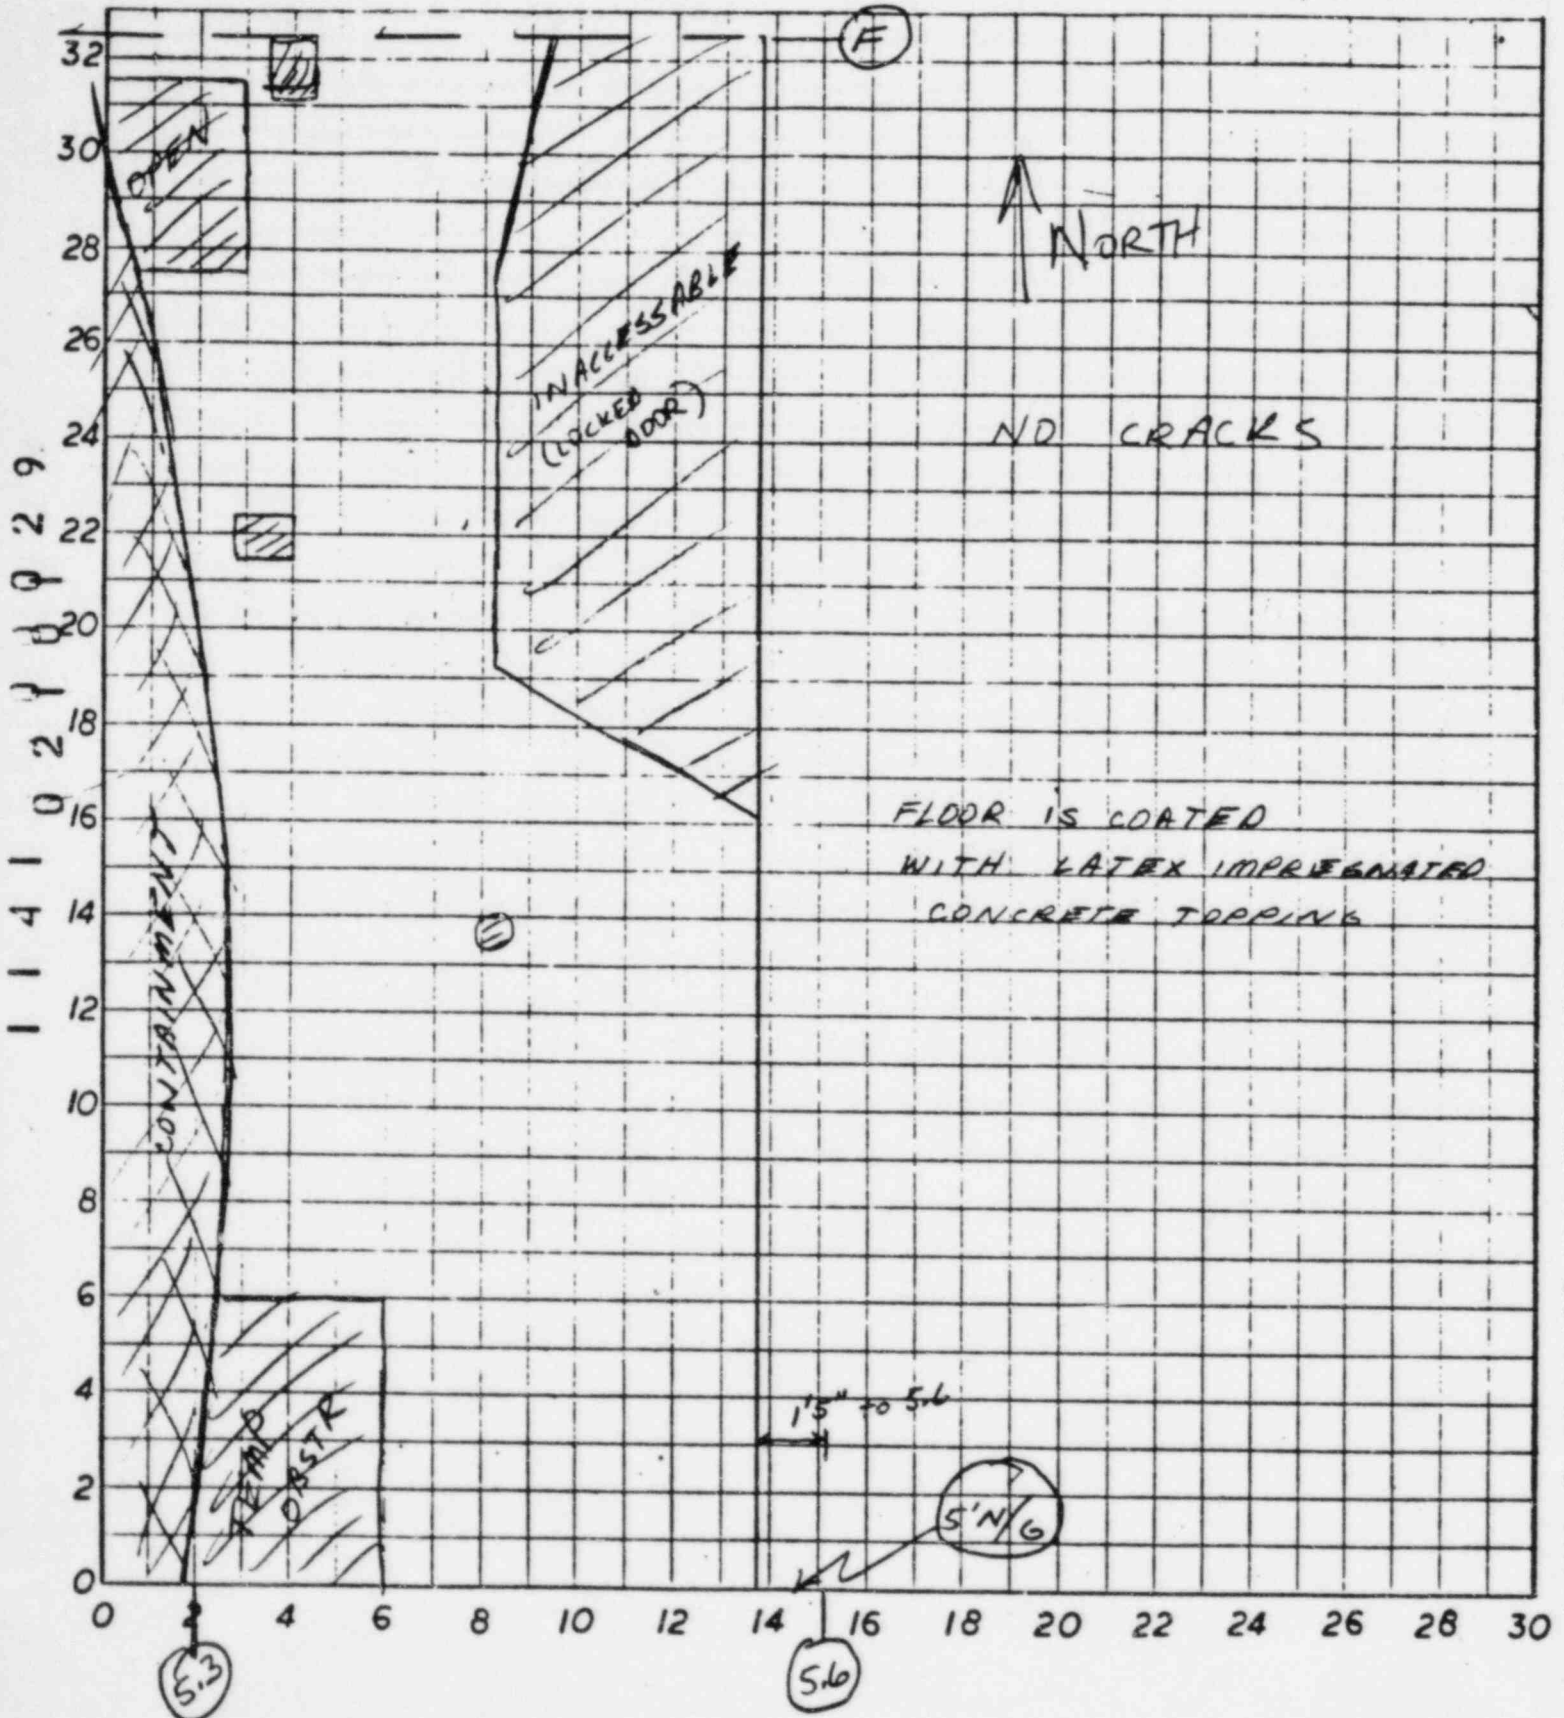 F
32
30
28
26
24
22
20
18
16
14
12
10
8
6
4
2
0
OPEN
NORTH
INACCESSABLE
(LOCKED
DOOR)
NO CRACKS
FLOOR IS COATED
WITH LATEX IMPREGNATED
CONCRETE TOPPING
CONTAINMENT
TEMP
OBSTR
1'5" to 5.6
5'N/G
0 2 4 6 8 10 12 14 16 18 20 22 24 26 28 30
5.3
5.6